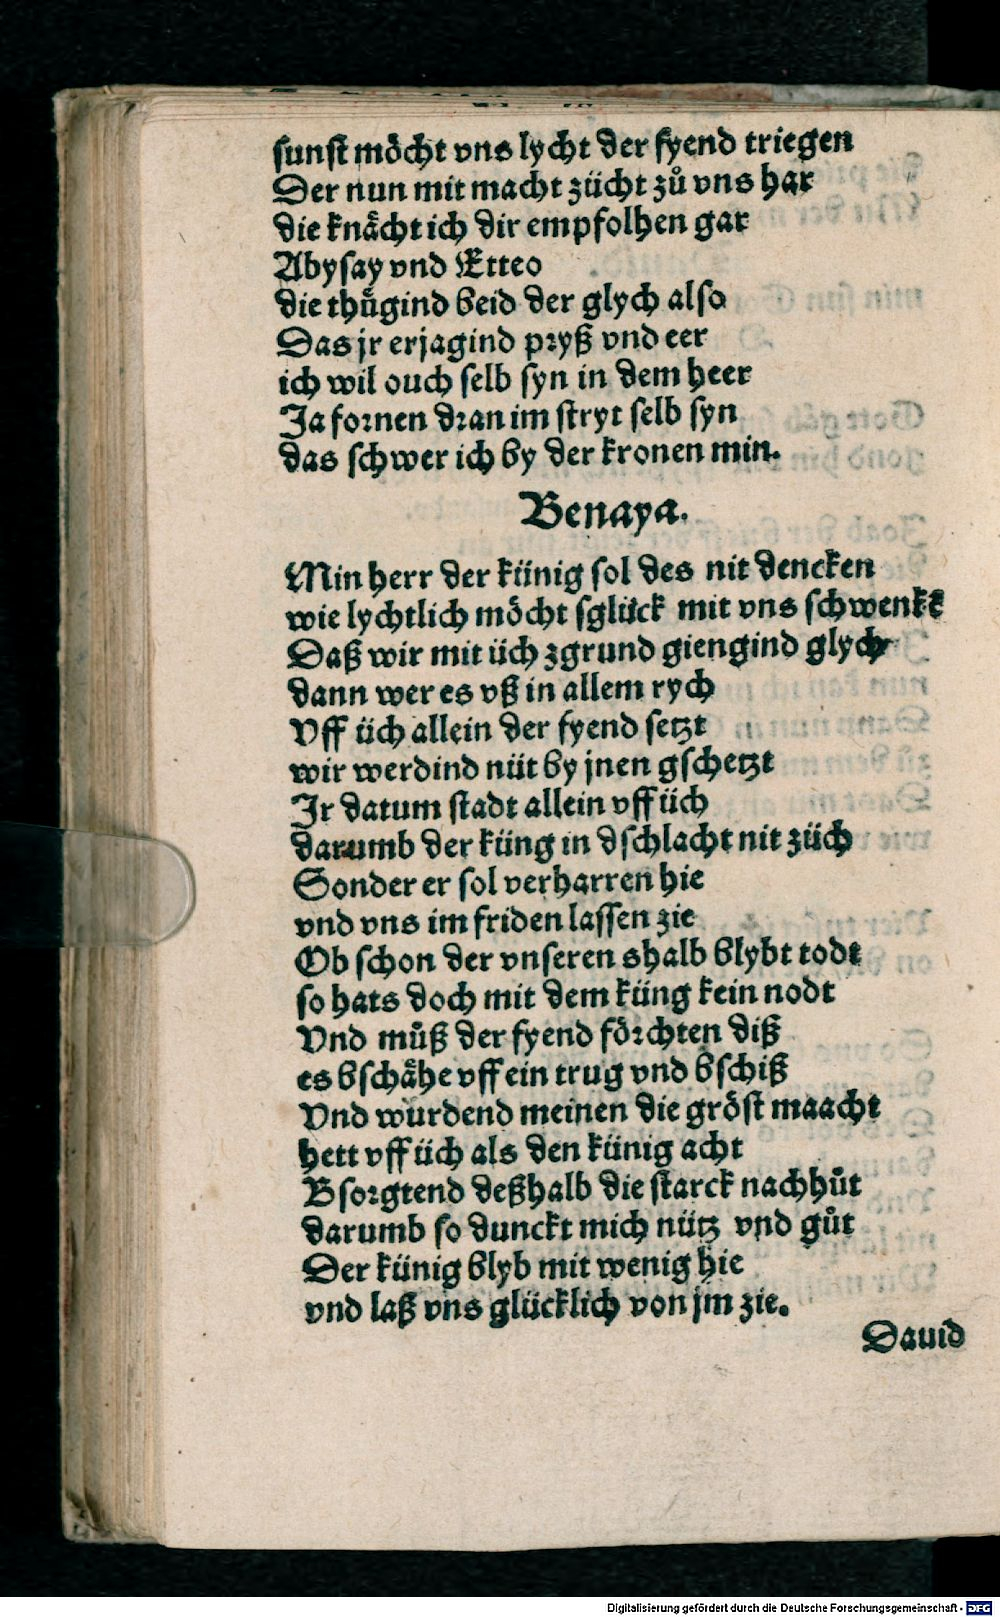 sunst möcht vns lycht der fyend triegen
Der nun mit macht zücht zů vns har
die knächt ich dir empfolhen gar
Abysay vnd Etteo
die thůgind beid der glych also
Das jr erjagind pryß vnd eer
ich wil ouch selb syn in dem heer
Ja fornen dran im stryt selb syn
das schwer ich by der kronen min.
Benaya.
Min herr der künig sol des nit dencken
wie lychtlich möcht sglück mit vns schwenkē
Daß wir mit üch zgrund giengind glych
dann wer es vß in allem rych
Vff üch allein der fyend setzt
wir werdind nüt by jnen gschetzt
Ir datum stadt allein vff üch
darumb der küng in dschlacht nit züch
Sonder er sol verharren hie
vnd vns im friden lassen zie
Ob schon der vnseren shalb blybt todt
so hats doch mit dem küng kein nodt
Vnd můß der fyend förchten diß
es bschähe vff ein trug vnd bschiß
Vnd wurdend meinen die gröst maacht
hett vff üch als den künig acht
Bsorgtend deßhalb die starck nachhůt
darumb so dunckt mich nütz vnd gůt
Der künig blyb mit wenig hie
vnd laß vns glücklich von jm zie.
Dauid
Digitalisierung gefördert durch die Deutsche Forschungsgemeinschaft - DFG